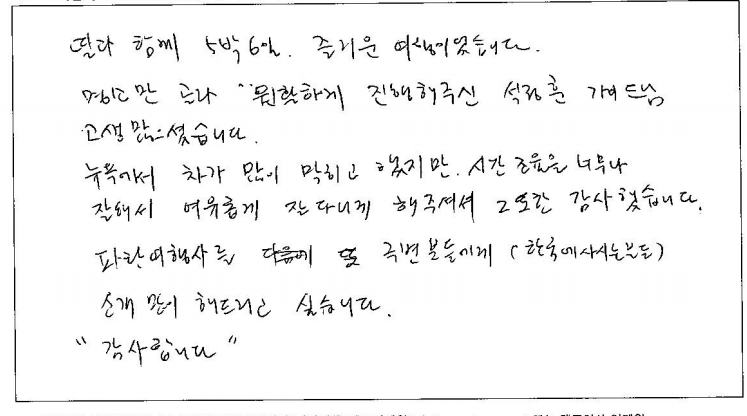 딸과 함께 5박 6일. 즐거운 여행이었습니다.
명소만 골라 "원활하게 진행해주신 석창훈 가이드님
고생 많으셨습니다.
뉴욕에서 차가 많이 막히고 했지만. 시간 조율을 너무나
잘해서 여유롭게 잘 다니게 해주셔서 그또한 감사했습니다.
파란여행사를 주변분들에게 (한국에 사시는분들)
소개 많이 해드리고 싶습니다.
"감사합니다"